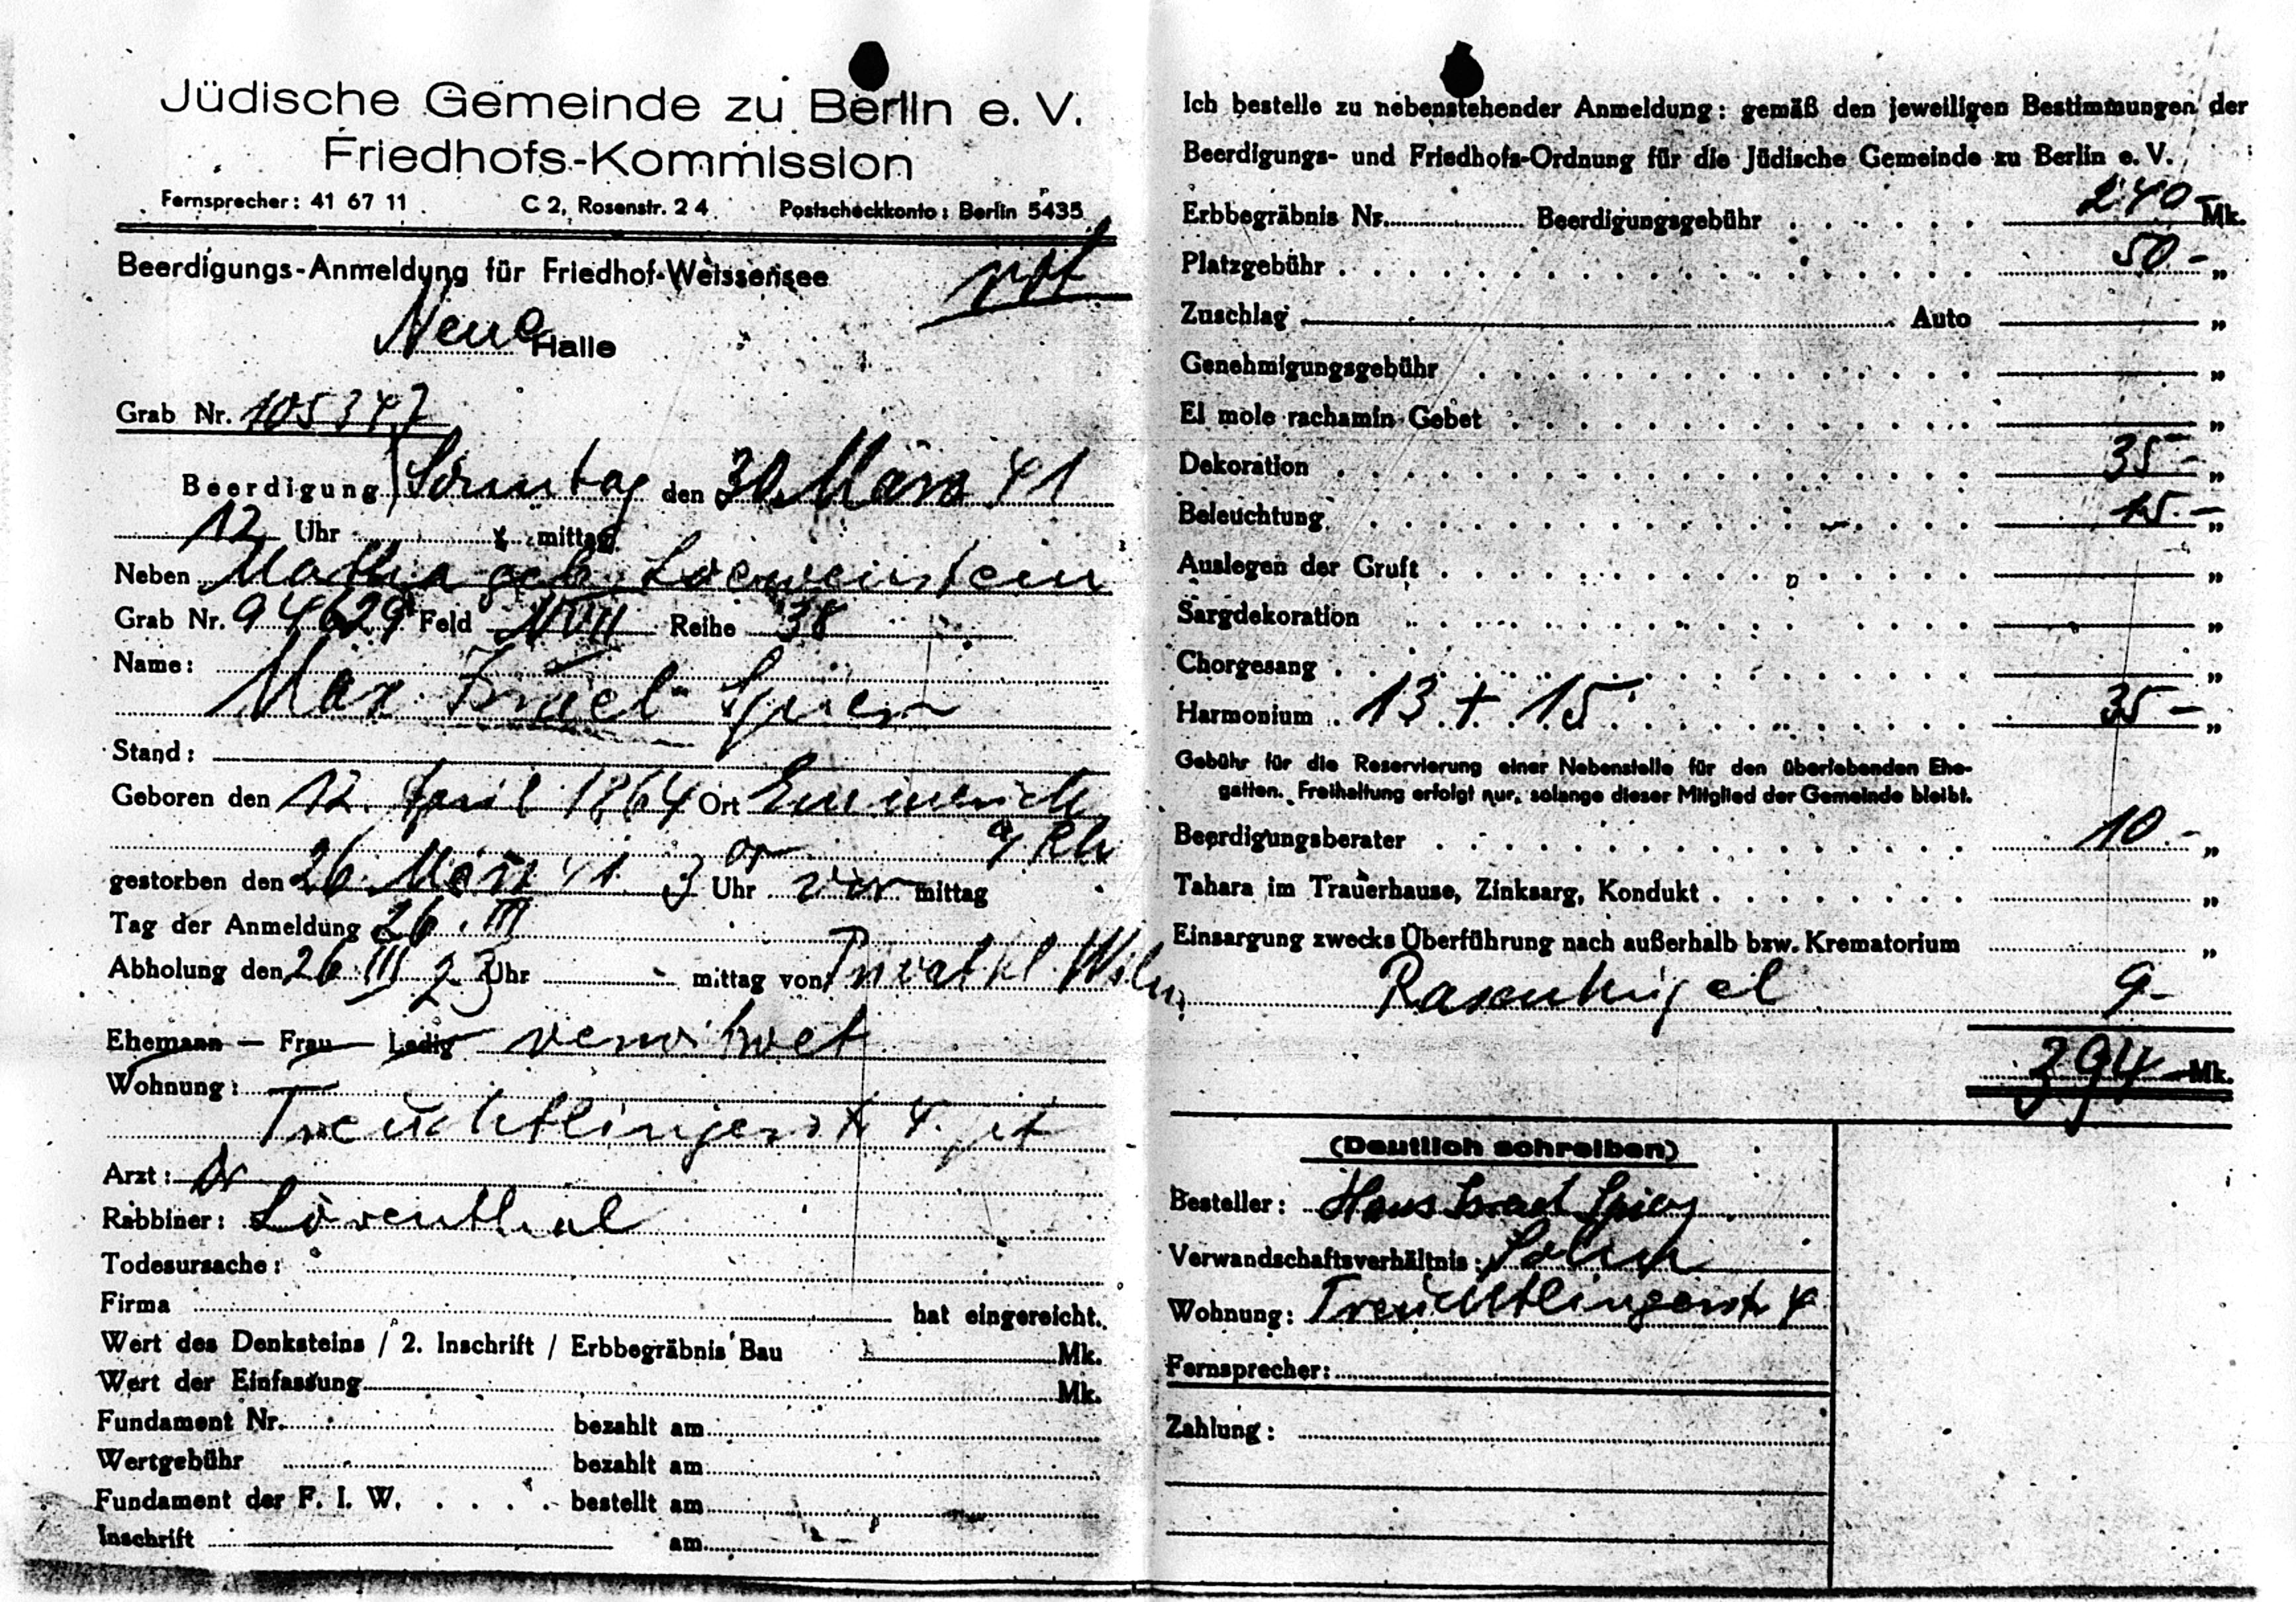 Jüdische Gemeinde zu Berlin e. V.
Friedhofs-Kommission
Fernsprecher: 41 67 11 C 2, Rosenstr. 2 4 Postscheckkonto: Berlin 5435
Beerdigungs-Anmeldung für Friedhof-Weissensee
Neue Halle
Grab Nr. 105347
Beerdigung Sonntag den 30. März 41
12 Uhr mittag
Neben geb. Loewenstein
Grab Nr. 94629 Feld Reihe 38
Name:
Max Israel Spier
Stand:
Geboren den 12. April 1864 Ort Emmerich
a/Rh
gestorben den 26. März 41 3 Uhr vor mittag
Tag der Anmeldung 26. III
Abholung den 26 III 23 Uhr mittag von
Ehemann — Frau — Ledig verwitwet
Wohnung:
Treuchtlingerstr 4
Arzt: Dr
Rabbiner: Löventhal
Todesursache:
Firma hat eingereicht.
Wert des Denksteins / 2. Inschrift / Erbbegräbnis Bau Mk.
Wert der Einfassung Mk.
Fundament Nr. bezahlt am
Wertgebühr bezahlt am
Fundament der F. I. W. . . . . bestellt am
Inschrift am
Ich bestelle zu nebenstehender Anmeldung: gemäß den jeweiligen Bestimmungen der
Beerdigungs- und Friedhofs-Ordnung für die Jüdische Gemeinde zu Berlin e. V.
Erbbegräbnis Nr. Beerdigungsgebühr 240 Mk.
Platzgebühr 50 - „
Zuschlag Auto „
Genehmigungsgebühr „
El mole rachamin Gebet „
Dekoration 35 - „
Beleuchtung 15.- „
Auslegen der Gruft „
Sargdekoration „
Chorgesang „
Harmonium 13 + 15 35 - „
Gebühr für die Reservierung einer Nebenstelle für den überlebenden Ehe-
gatten. Freihaltung erfolgt nur, solange dieser Mitglied der Gemeinde bleibt.
Beerdigungsberater 10.- „
Tahara im Trauerhause, Zinksarg, Kondukt „
Einsargung zwecks Überführung nach außerhalb bzw. Krematorium „
Rasenhügel 9-
394 Mk.
(Deutlich schreiben)
Besteller: Hans Israel Spier
Verwandschaftsverhältnis: Sohn
Wohnung: Treuchtlingerstr 4
Fernsprecher:
Zahlung: